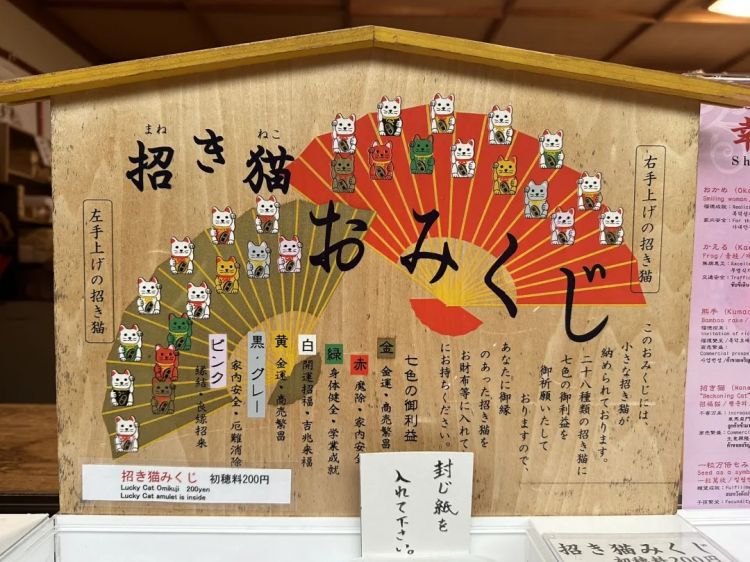 招き猫
まね
ねこ
おみくじ
右手上げの招き猫
左手上げの招き猫
このおみくじには、
小さな招き猫が
納められております。
二十八種類の招き猫に
七色の御利益を
御祈願いたして
おりますので、
あなたに御縁
のあった招き猫を
お財布等に入れて
にお持ちください。
七色の御利益
金 金運・商売繁昌
赤 魔除・家内安全
緑 身体健全・学業成就
白 開運招福・吉兆来福
黄 金運・商売繁昌
黒・グレー 家内安全・厄難消除
ピンク 縁結・良縁招来
招き猫みくじ 初穂料200円
Lucky Cat Omikuji 200yen
Lucky Cat amulet is inside
封じ紙を
入れて下さい。
招き猫みくじ
初穂料200円
幸
Sh
おかめ (Oka
Smiling woman,
かえる (Kae
Frog /
熊手 (Kumad
Bamboo rake /
招き猫 (Mane
"Beckoning Cat"
一粒万倍もみ
Seed as a symb